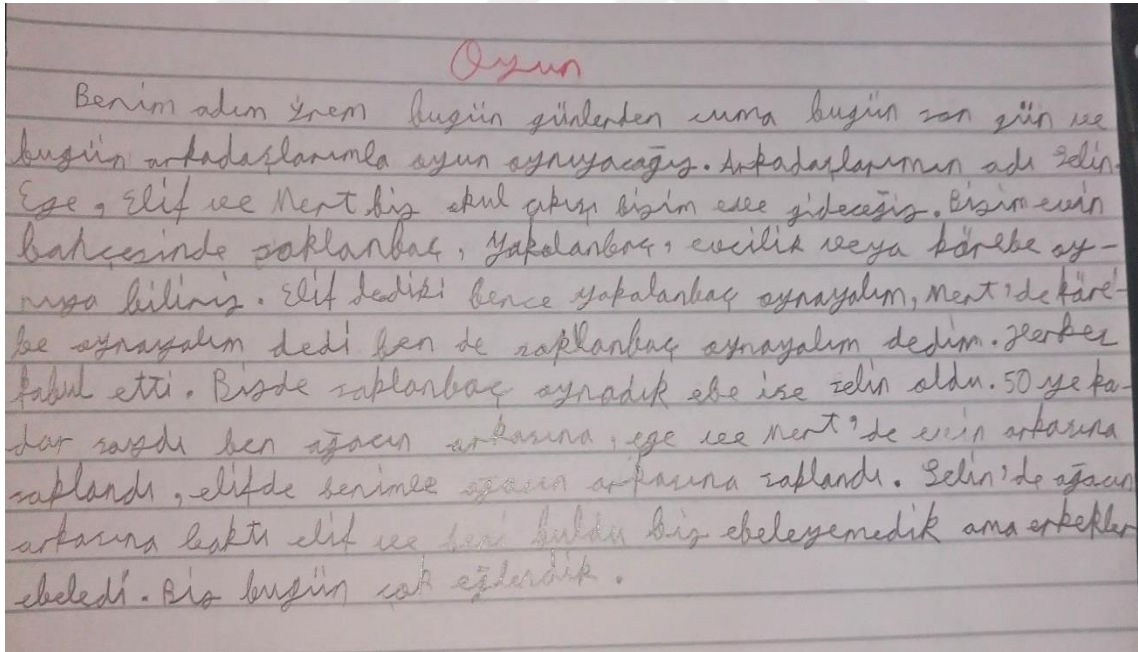 Oyun
Benim adım İrem bugün günlerden cuma bugün son gün ve
bugün arkadaşlarımla oyun oynıyacağız. Arkadaşlarımın adı Selin,
Ege, Elif ve Mert biz okul çıkışı bizim eve gideceğiz. Bizim evin
bahçesinde saklanbaç, Yakalanbaç, evcilik veya körebe oy-
nıya biliriz. Elif dediki bence yakalanbaç oynayalım, Mert'de köre-
be oynayalım dedi ben de saklanbaç oynayalım dedim. Herkes
kabul etti. Bizde saklanbaç oynadık ebe ise selin oldu. 50 ye ka-
dar saydı ben ağacın arkasına, ege ve Mert'de evin arkasına
saklandı, elifde benimle ağacın arkasına saklandı. Selin'de ağacın
arkasına baktı elif ve beni buldu biz ebeleyemedik ama erkekler
ebeledi. Biz bugün çok eğlendik.